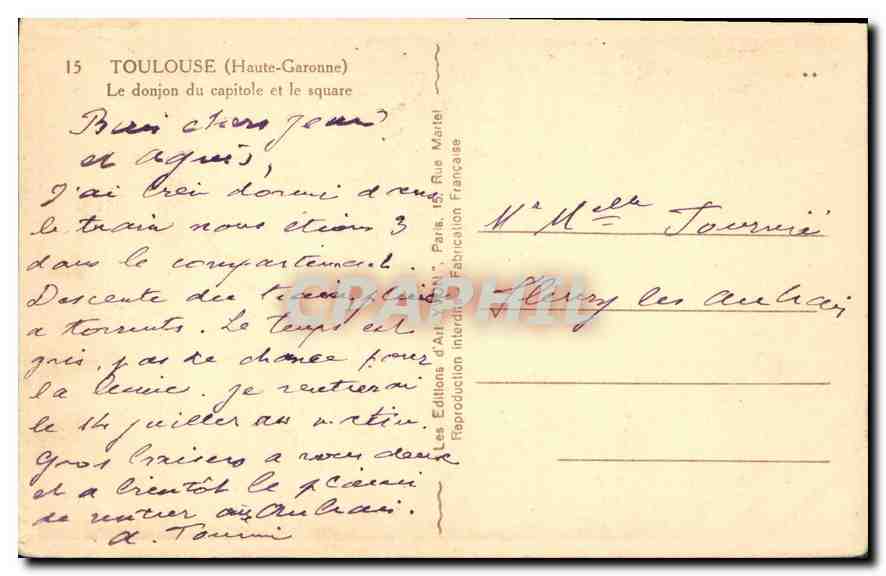 15 TOULOUSE (Haute-Garonne)
Le donjon du capitole et le square
Bien chers Jean
et Agnès,
J'ai bien dormi dans
le train nous étions 3
dans le compartiment.
Descente du train pluie
a torrents. Le temps est
gris, pas de chance pour
la . je rentrerai
le 14 juillet au matin.
Gros baisers a vous deux
et a bientôt le plaisir
de rentrer aux Aubrais.
a.
Les Editions d'Art "YVON", Paris, 15, Rue Martel
Reproduction interdite Fabrication Française
Mr Melle
Fleury les Aubrais
CPAPHIL